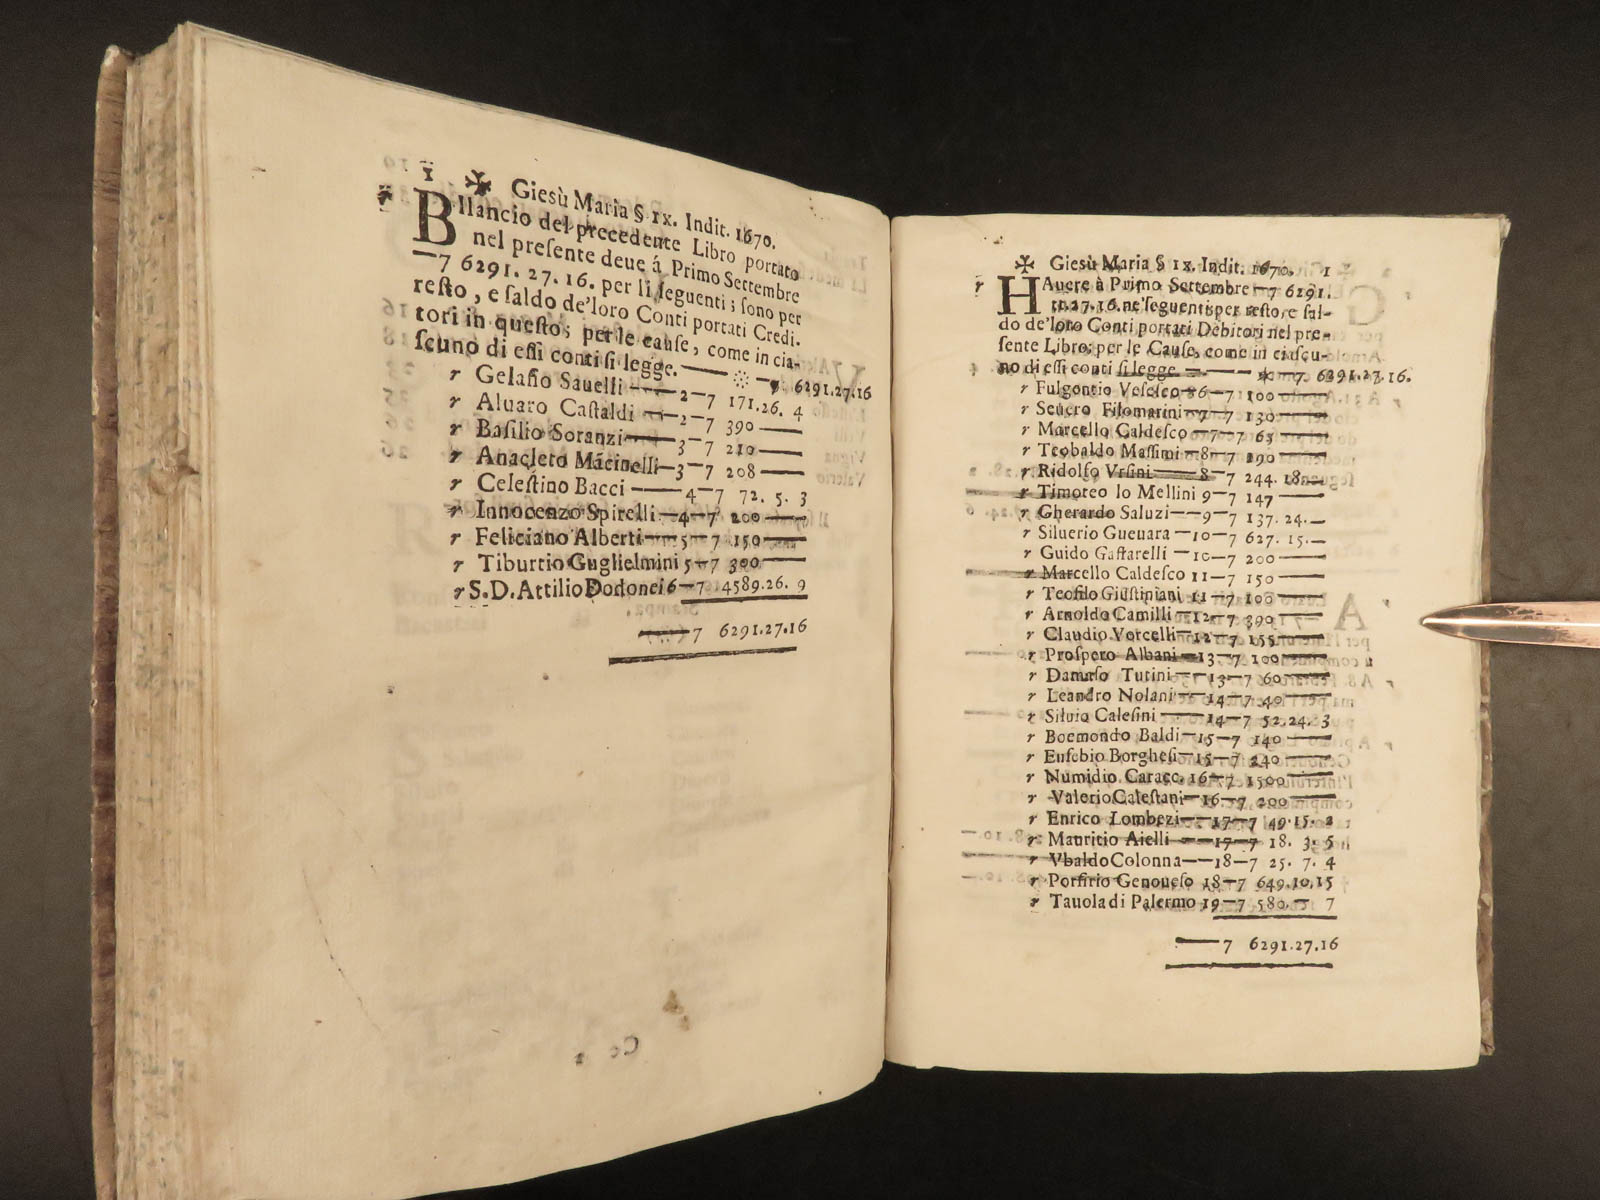 1 ✠ Giesù Maria § IX. Indit. 1670.
BIlancio del precedente Libro portato
nel preſente deue á Primo Settembre
—7 6291. 27. 16. per li ſeguenti; ſono per
reſto, e ſaldo de'loro Conti portati Credi-
tori in queſto; per le cauſe, come in cia-
ſcuno di eſſi conti ſi legge. — 7 6291.27.16
r Gelaſio Sauelli — 2—7 171.26. 4
r Aluaro Caſtaldi — 2—7 390 —
r Baſilio Soranzi — 3—7 210 —
r Anacleto Macinelli—3—7 208 —
r Celeſtino Bacci — 4—7 72. 5. 3
r Innocenzo Spirelli—4—7 200 —
r Feliciano Alberti — 5—7 150 —
r Tiburtio Guglielmini 5—7 300 —
r S.D. Attilio Dodonei 6—7 4589.26. 9
— 7 6291.27.16
Cc 2
✠ Giesù Maria § IX. Indit. 1670. 1
r HAuere à Primo Settembre —7 6291.
27.16. ne'ſeguenti per reſto, e ſal-
do de'loro Conti portati Debitori nel pre-
ſente Libro; per le Cauſe, come in ciaſcu-
no di eſſi conti ſi legge — 7 6291.27.16.
r Fulgontio Veſeſco—6—7 100 —
r Seuero Filomarini—7—7 130 —
r Marcello Caldeſco—7—7 65 —
r Teobaldo Maſſimi —8—7 290 —
r Ridolfo Vrſini — 8—7 244. 18 —
r Timoteo lo Mellini 9—7 147 —
r Gherardo Saluzi — 9—7 137. 24. —
r Siluerio Gueuara —10—7 627. 15. —
r Guido Gaſtarelli —10—7 200 —
r Marcello Caldeſco 11—7 150 —
r Teofilo Giuſtiniani 11—7 100 —
r Arnoldo Camilli —12—7 390 —
r Claudio Vorcelli —12—7 155 —
r Proſpero Albani —13—7 100 —
r Damaſo Turini —13—7 60 —
r Leandro Nolani — 14—7 40 —
r Siluio Caleſini —14—7 52.24. 3
r Boemondo Baldi—15—7 140 —
r Euſebio Borgheſi—15—7 240 —
r Numidio Caracc. 16—7 1500 —
r Valerio Caleſtani—16—7 200 —
r Enrico Lombezi —17—7 49.15. 2
r Mauritio Aielli —17—7 18. 3. 5
r Vbaldo Colonna—18—7 25. 7. 4
r Porfirio Genoueſo 18—7 649.10.15
r Tauola di Palermo 19—7 580.— 7
—7 6291.27.16